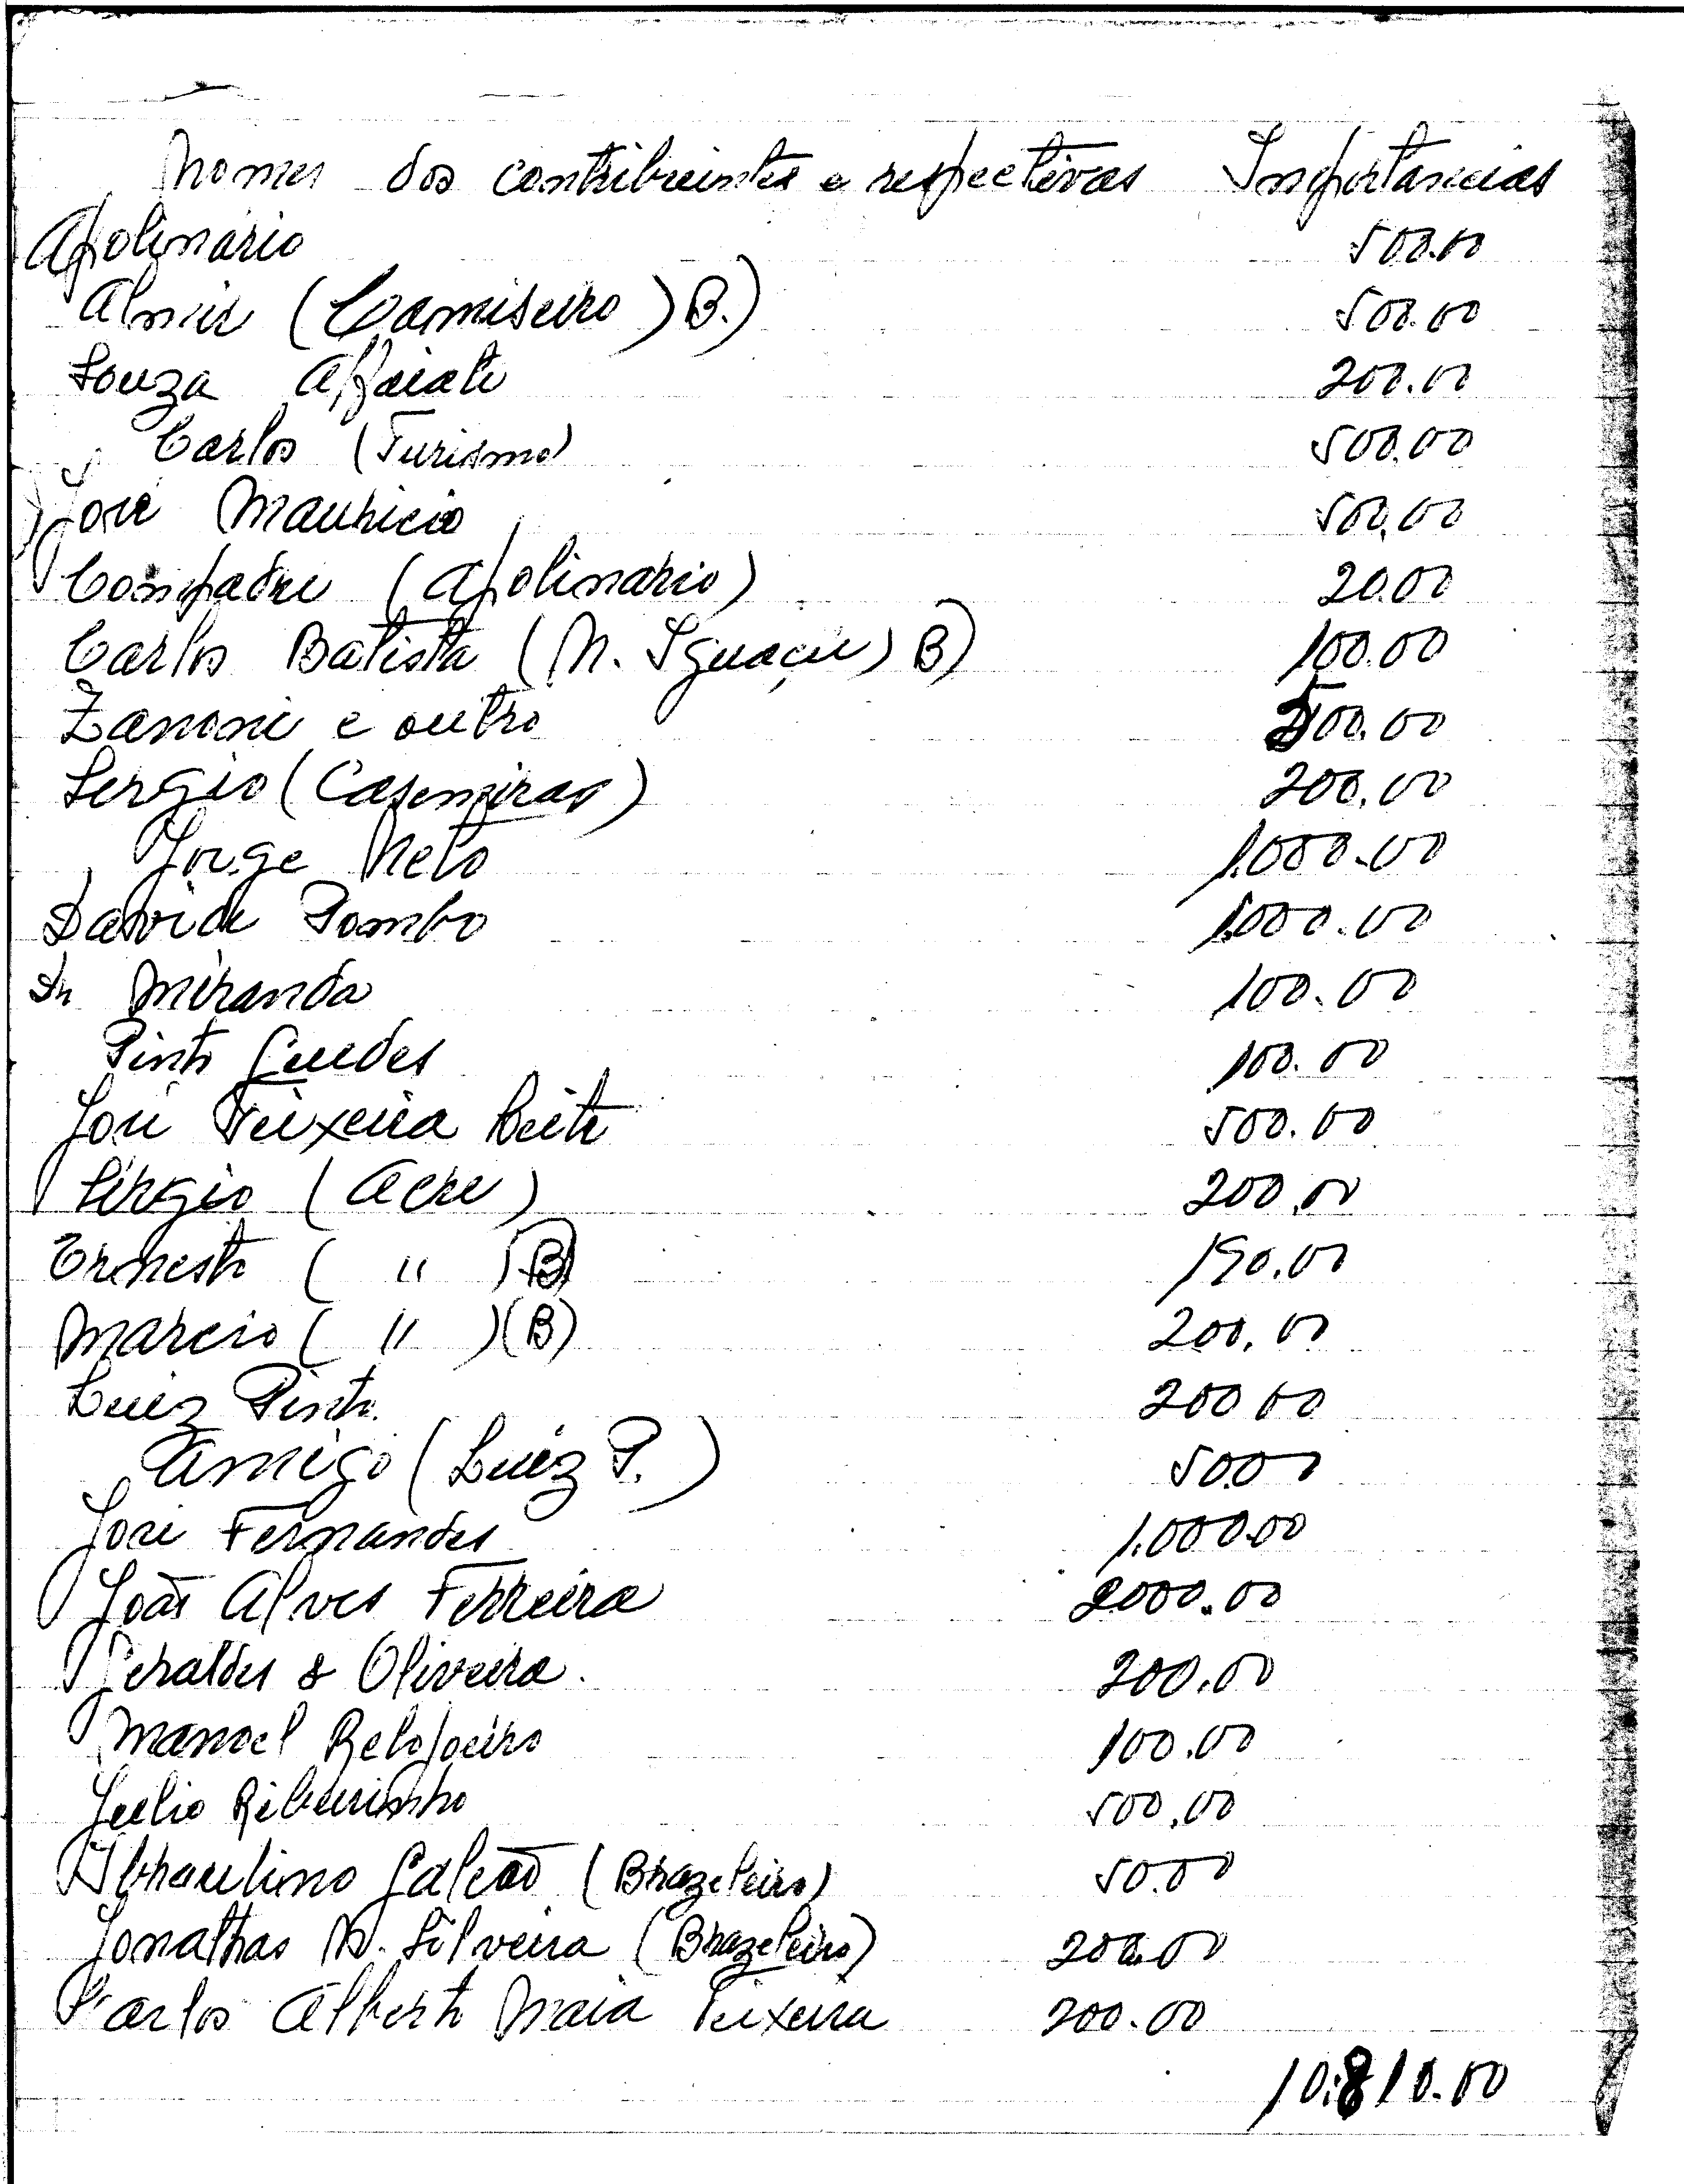 Nomes dos contribuintes e respectivas Importancias
Apolinário 500.00
Almir (Camiseiro) B.) 500.00
Souza Alfaiate 200.00
Carlos (Turismo) 500.00
José Mauricio 500.00
Compadre (Apolinario) 20.00
Carlos Batista (N. Iguaçu) B) 100.00
Zanoni e outro 500.00
Sergio (Casemiras) 200.00
Jorge Melo 1.000.00
Davide Pombo 1.000.00
Sr Miranda 100.00
Pinto Guedes 100.00
José Teixeira Leite 500.00
Sérgio (Acre) 200.00
Ernesto ( " ) (B) 190.00
Marcio ( " ) (B) 200.00
Luiz Pinto. 200 00
Amigo (Luiz P.) 50.00
José Fernandes 1.000.00
João Alves Ferreira 2000.00
Geraldes & Oliveira. 200.00
Manoel Relojoeiro 100.00
Julio Ribeirinho 500.00
Galeão (Brazeleiro) 50.00
Jonathas M. Silveira (Brazeleiro) 200.00
Carlos Alberto Maia Teixeira 200.00
10.810.00